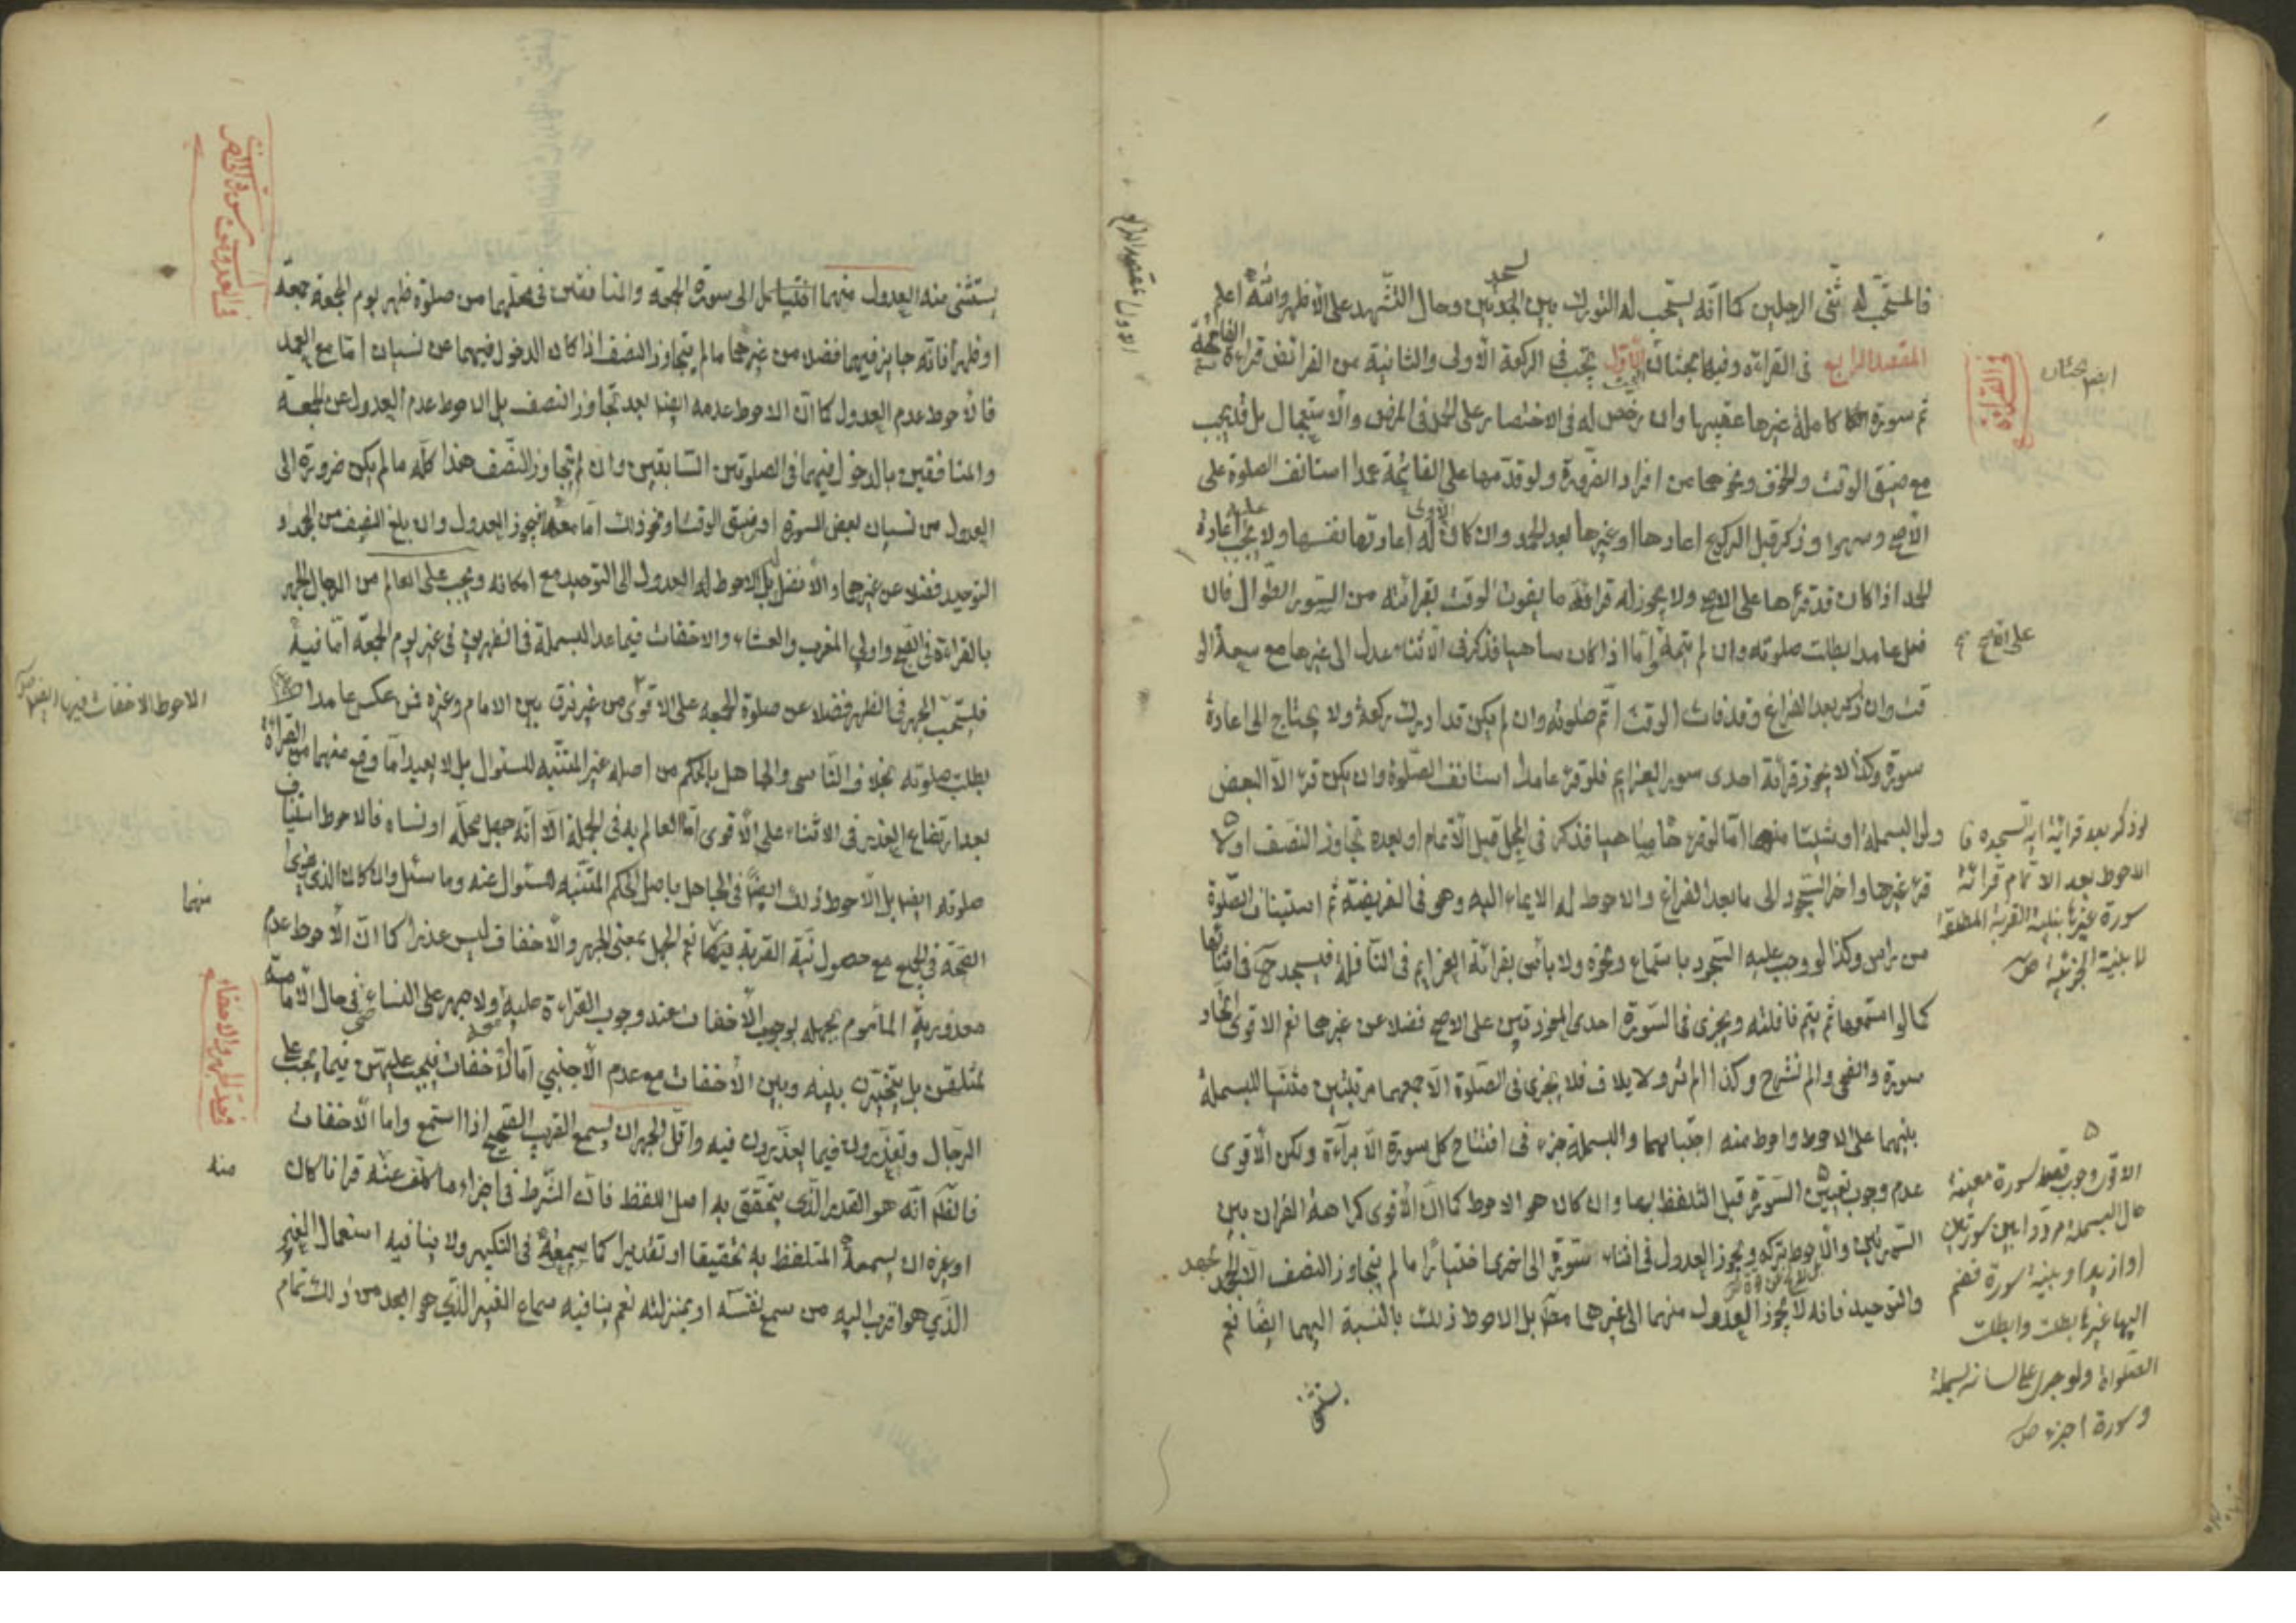 فالمستحب له ثنى الرجلين كما انّه يستحب له التورك بين السجدتين وحال التشهد على الاظهر والله اعلم
المقصد الرابع فى القراءة وفيها بحثان الأول تجب فى الركعة الاولى والثانية من الفرائض قراءة الفاتحة
ثم سورة كاملة غيرها عقيبها وان رخص له فى الاختصار على الحمد فى المرض والاستعجال بل قد يجب
مع ضيق الوقت والخوف ونحوهما من افراد الضرورة ولو قدّمها على الفاتحة عمدا استانف الصلوة على
الاصح وسهوا وذكر قبل الركوع اعادها او غيرها بعد الحمد وان كان الاولى له اعادتها نفسها ولا يجب عليه اعادة
الحمد اذا كان قد قرءها على الاصح ولا يجوز له قرائة ما يفوت الوقت بقرائته من السور الطوال فان
فعل عامدا بطلت صلوته وان لم يتمه وامّا اذا كان ساهيا فذكر فى الاثناء عدل الى غيرها مع سعة الو
قت وان ذكر بعد الفراغ وقد فات الوقت اتم صلوته وان لم يكن قد ادرك ركعة ولا يحتاج الى اعادة
سورة وكذا لا يجوز قرائة احدى سور العزايم فلو قرء عامدا استانف الصلوة وان يكن قرء الا البعض
ولو البسملة او شيئا منها امّا لو قرء ساهيا فذكر فى المحل قبل الاتمام او بعده تجاوز النصف او لا
قرء غيرها واخر السجود الى ما بعد الفراغ والاحوط له الايماء اليه وهو فى الفريضة ثم استيناف الصلوة
من راس وكذا لو وجب عليه السجود باستماع ونحوه ولا باس بقرائة العزايم فى النافلة فيسجد ح فى اثنائها
كما لو استمعها ثم يتم نافلته ويجزى فى السورة احدى المعوذتين على الاصح فضلا عن غيرهما نعم الاقوى اتحاد
سورة والضحى والم نشرح وكذا الم تر ولايلاف فلا يجزى فى الصلوة الا جمعهما مرتبتين مثنيا للبسملة
بينهما على الاحوط واحوط منه اجتنابهما والبسملة جزء فى افتتاح كل سورة الا براءة ولكن الاقوى
عدم وجوب تعيين السورة قبل التلفظ بها وان كان هو الاحوط كما ان الاقوى كراهة القران بين
السورتين والاحوط تركه ويجوز العدول فى اثناء سورة الى اخرى اختيارا ما لم يتجاوز النصف الا الجحد
والتوحيد فانه لا يجوز العدول منهما الى غيرهما بل الاحوط ذلك بالنسبة اليهما ايضا نعم
يستثنى
فى القراءة
ايضا بحثان
على الاصح
لو ذكر بعد قرائة اية السجدة فا
الاحوط بعد الاتمام قرائة
سورة غيرها بنية القربة المطلقة
لا بنية الجزئية
الاقوى وجوب تعيين سورة معينة
حال البسملة مرددا بين سورتين
او ازيد او بنية سورة فضم
اليها غيرها بطلت وابطلت
الصلوة ولو جرى على لسانه بسملة
وسورة اجزء
يستثنى منه العدول منهما الى سورة الجمعة والمنافقين فى محلهما من صلوة ظهر يوم الجمعة جمعة
او ظهرا فانه جايز فيهما فضلا من غيرهما ما لم يتجاوز النصف اذا كان الدخول فيهما عن نسيان امّا مع العمد
فالاحوط عدم العدول كما ان الاحوط عدمه ايضا بعد تجاوز النصف بل الاحوط عدم العدول عن الجمعة
والمنافقين بالدخول فيهما فى الصلوتين السابقتين وان لم يتجاوز النصف هذا كله ما لم يكن ضرورة الى
العدول من نسيان بعض السورة او ضيق الوقت او نحو ذلك امّا معه فيجوز العدول وان بلغ النصف من الجحد و
التوحيد فضلا عن غيرهما والافضل بل الاحوط له العدول الى التوحيد مع امكانه ويجب على العالم من الرجال الجهر
بالقراءة فى الصبح واولى المغرب والعشاء والاخفات فيما عدا البسملة فى الظهرين فى غير يوم الجمعة امّا فيه
فيستحب الجهر فى الظهر فضلا عن صلوة الجمعة على الاقوى من غير فرق بين الامام وغيره فمن عكس عامدا
بطلت صلوته بخلاف الناسى والجاهل بالحكم من اصله غير المتنبه للسئوال بل لا يعيد ما وقع منهما من القراءة
بعد ارتفاع العذر فى الاثناء على الاقوى امّا العالم به فى الجملة الا انّه جهل محله او نساه فالاحوط استيناف
صلوته ايضا بل الاحوط ذلك ايضا فى الجاهل باصل الحكم المتنبه للسئوال عنه وما سئل وان كان الذى يقوى
الصحة فى الجميع مع حصول نية القربة فيها نعم الجهل بمعنى الجهر والاخفات ليس عذرا كما ان الاحوط عدم
معذورية الماموم بجهله بوجوب الاخفات عند وجوب القراءة عليه ولا جهر على النساء فى حال الامامة
لمثلهن بل يتخيرن بينه وبين الاخفات مع عدم الاجنبي امّا الاخفات فيجب عليهن فيما يجب على
الرجال ويعذرون فيما يعذرون فيه واقل الجهر ان يسمع القريب الصحيح اذا استمع واما الاخفات
فاقله انّه هو القدر الذى يتحقق به اصل اللفظ فان الشرط فى اجزاء ما كلف عنه قرانا كان
او غيره ان يسمعه المتلفظ به تحقيقا او تقديرا كما سمعته فى التكبير ولا ينافيه استعمال الغير
الذى هو اقرب اليه من سمع نفسه او بمنزلته نعم ينافيه سماع الغير الذى هو ابعد من ذلك تمام
الاحوط الاخفات فيها ايضا
منهما
منه